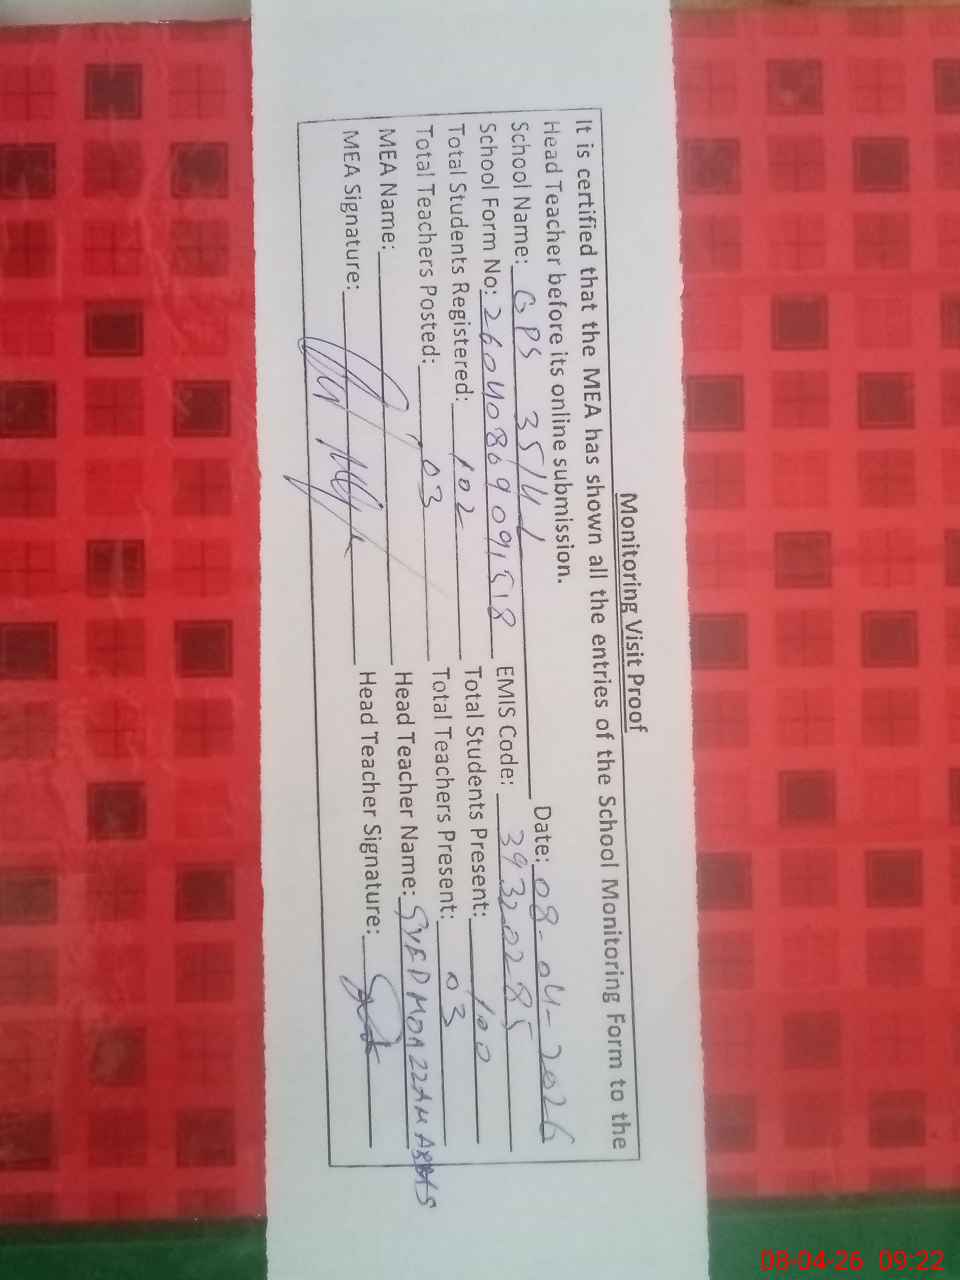 Monitoring Visit Proof
It is certified that the MEA has shown all the entries of the School Monitoring Form to the
Head Teacher before its online submission.
School Name: GPS 35/4L Date: 08-04-2026
School Form No: 26040809091518 EMIS Code: 39320285
Total Students Registered: 102 Total Students Present: 100
Total Teachers Posted: 03 Total Teachers Present: 03
MEA Name: Head Teacher Name: SYED MOAZZAM ABBAS
MEA Signature: Head Teacher Signature:
08-04-26 09:22